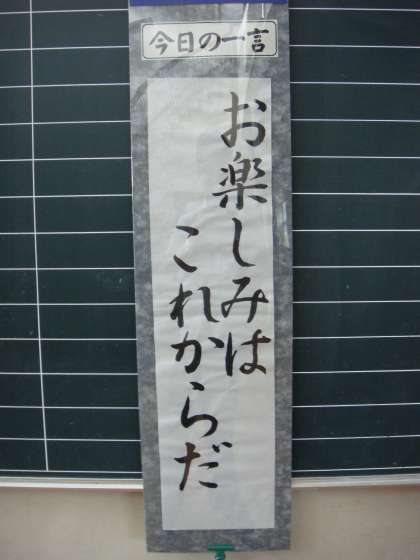 今日の一言
お楽しみは
これからだ